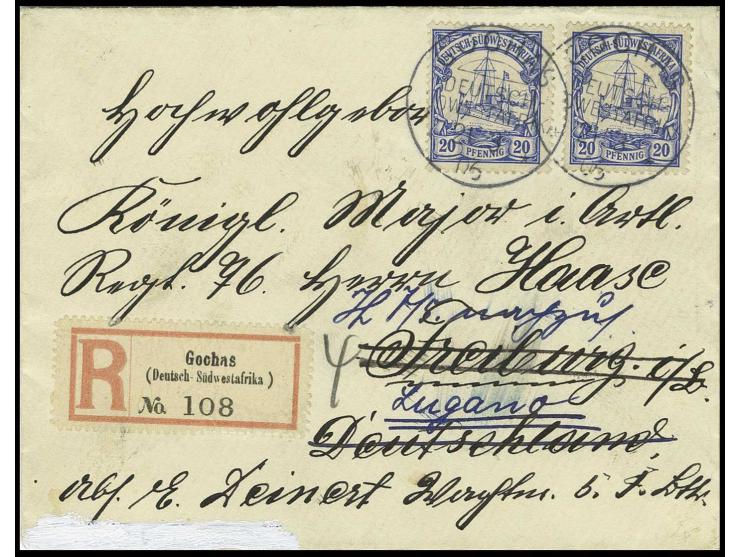 DEUTSCH-SÜDWESTAFRIKA DEUTSCH-SÜDWESTAFRIKA
20 PFENNIG 20 20 PFENNIG 20
Hochwohlgebor
Königl. Major i. Artl.
Regt. 76. Herrn Haase
Freiburg. i/B.
Lugano
Deutschland
R
Gochas
(Deutsch-Südwestafrika)
No. 108
Abs. E. Deinert Wachtm. 5. F. Bttr.